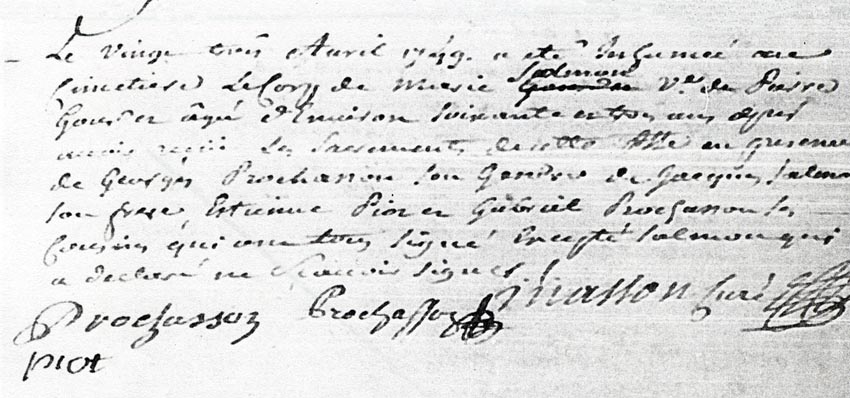 Le vingt trois Avril 1749. a eté Inhumeé au
Cimetiere Le Corps de Marie Salmon Vᵉ de Pierre
âgé d'Environ Soixante et trois ans apres
avoir recü les Sacrements de cette en presence
de Georges Prochasson son Gendre de Jacques Salmon
son frere, Estienne Piot et Gabriel Prochasson ses
Cousins qui ont tous signé Excepté Salmon qui
a declaré ne Scavoir signer /
Prochasson Prochasson Masson Curé
piot